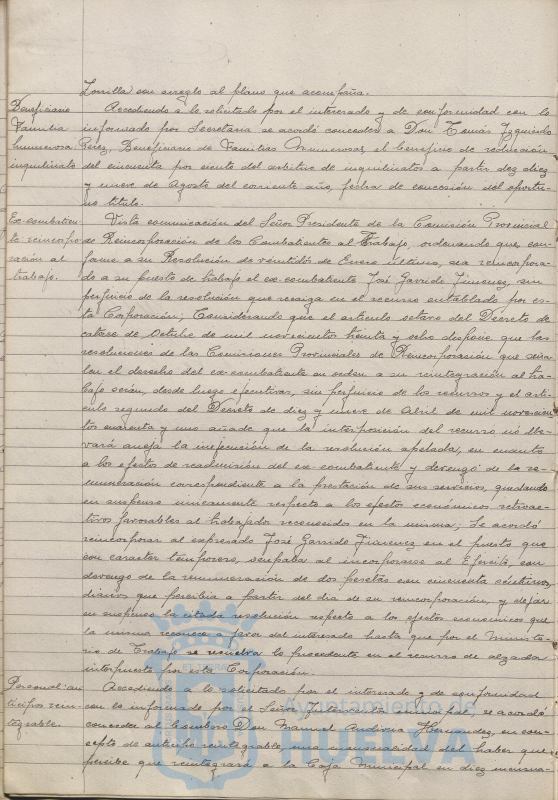 Zorrilla con arreglo al plano que acompaña.
Beneficiario Familia numerosa inquilinato
Accediendo a lo solicitado por el interesado y de conformidad con lo
informado por Secretaría se acordó conceder a Don Tomás Izquierdo
Pérez, Beneficiario de Familias Numerosas, el beneficio de reducción
del cincuenta por ciento del arbitrio de inquilinatos a partir diez diez
y nueve de Agosto del corriente año, fecha de concesión del oportu-
no título.
Ex-combatien-
te reincorpo-
ración al
trabajo.
Vista comunicación del Señor Presidente de la Comisión Provincial
de Reincorporación de los Combatientes al Trabajo, ordenando que, con-
forme a su Resolución de veintidós de Enero último, sea reincorpora-
do a su puesto de trabajo el ex-combatiente José Garrido Jimenez, sin
perjuicio de la resolución que recaiga en el recurso entablado por es-
ta Corporación; Considerando que el artículo octavo del Decreto de
catorce de Octubre de mil novecientos treinta y ocho dispone que las
resoluciones de las Comisiones Provinciales de Reincorporación que seña-
len el derecho del ex-combatiente en orden a su reintegración al tra-
bajo serán, desde luego ejecutivas, sin perjuicio de los recursos y el artí-
culo segundo del Decreto de diez y nueve de Abril de mil novecien-
tos cuarenta y uno añade que la interposición del recurso no lle-
vará aneja la inejecución de la resolución apelada, en cuanto
a los efectos de readmisión del ex-combatiente y devengo de la re-
muneración correspondiente a la prestación de sus servicios, quedando
en suspenso únicamente respecto a los efectos económicos retroac-
tivos favorables al trabajador reconocidos en la misma; Se acordó
reincorporar al expresado José Garrido Jimenez en el puesto que
con carácter temporero, ocupaba al incorporarse al Ejército, con
devengo de la remuneración de dos pesetas con cincuenta céntimos
diarios que percibía a partir del día de su reincorporación, y dejar
en suspenso la citada resolución respecto a los efectos económicos que
la misma reconoce a favor del interesado hasta que por el Ministe-
rio de Trabajo se resuelva lo procedente en el recurso de alzada
interpuesto por esta Corporación.
Personal an-
ticipos rein-
tegrable.
Accediendo a lo solicitado por el interesado y de conformidad
con lo informado por el Señor Interventor municipal, se acordó
conceder al bombero Don Manuel Andivia Hernandez, en con-
cepto de anticipo reintegrable, una mensualidad del haber que
percibe que reintegrará a la Caja Municipal en diez mensua-
Ayuntamiento de
HUELVA